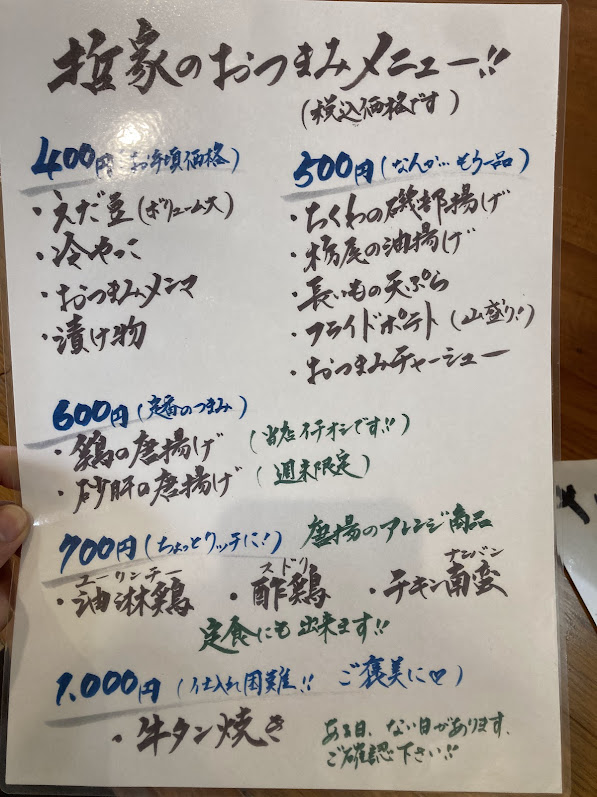 哲家のおつまみメニュー!!
(税込価格です)
400円(お手頃価格)
・えだ豆(ボリューム大)
・冷やっこ
・おつまみメンマ
・漬け物
500円(なんか…もう一品)
・ちくわの磯部揚げ
・栃尾の油揚げ
・長いもの天ぷら
・フライドポテト(山盛り!)
・おつまみチャーシュー
600円(定番のつまみ)
・鶏の唐揚げ (当店イチオシです!!)
・砂肝の唐揚げ (週末限定)
700円(ちょっとリッチに!) 唐揚のアレンジ商品
ユーリンチー スドリ ナンバン
・油淋鶏 ・酢鶏 ・チキン南蛮
定食にも出来ます!!
1.000円(仕入れ困難!! ご褒美に♡)
・牛タン焼き
ある日、ない日があります、
ご確認下さい!!